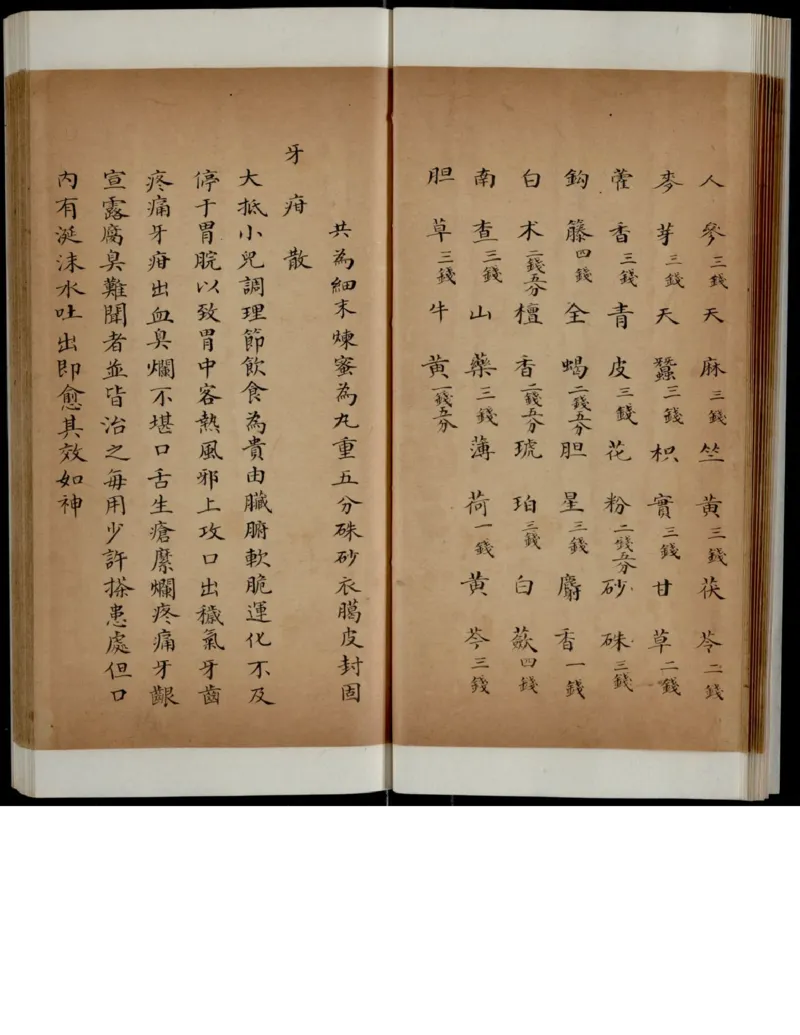 人參三錢天麻三錢竺黃三錢茯苓二錢
麥芽三錢天蠶三錢枳實三錢甘草二錢
藿香三錢青皮三錢花粉二錢五分砂硃三錢
鈎籐四錢全蝎二錢五分胆星三錢麝香一錢
白术二錢五分檀香二錢五分琥珀三錢白蔹四錢
南查三錢山藥三錢薄荷一錢黃芩三錢
胆草三錢牛黃一錢五分
共為細末煉蜜為丸重五分硃砂衣臈皮封固
牙疳散
大抵小兒調理節飲食為貴由臟腑軟脆運化不及
停于胃脘以致胃中客熱風邪上攻口出穢氣牙齒
疼痛牙疳出血臭爛不堪口舌生瘡縻爛疼痛牙齦
宣露腐臭難聞者並皆治之每用少許搽患處但口
內有涎沫水吐出即愈其效如神